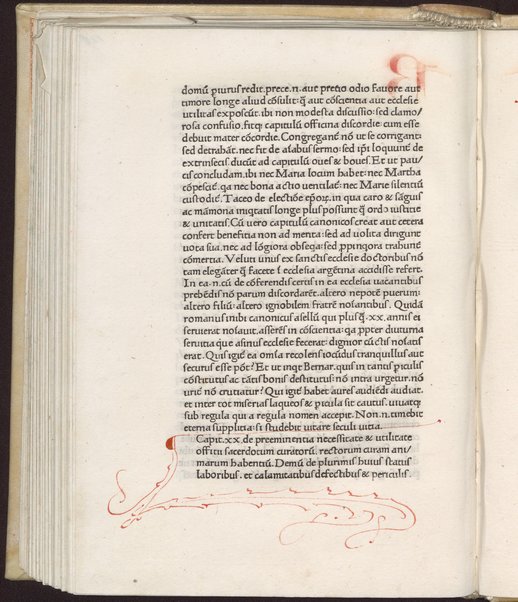 domū p̄turus redit. prece .n. aut precio odio fauore aut
timore longe aliud cōsulit: q̄ aut cōscientia aut ecclesie
utilitas exposcūt. ibi non modesta discussio: sed clamo/
rosa confusio. fitq; capitulū officina discordie: cum esse
debuit mater cōcordie. Congreganē nō ut se corrigant:
sed detrahāt. nec fit de aīabus sermo: sed ip̄i loquunē de
extrinsecis. ducūt ad capitulū oues & boues. Et ut pau/
cis concludam. ibi nec Maria locum habet: nec Martha
cōpescit̄. qa nec bona actio uentilaē: nec Marie silentiū
custodit̄. Taceo de electiōe ep̄oꝝ. in qua caro & sāguis
ac māmona iniqtatis longe plus possunt q̄ ordo iusticie
& unitatis. Cū uero capitulū canonicos creat aut cetera
confert beneficia non ad merita: sed ad uolita dirigunt
uota sua. nec ad lōgiora obseqa: sed ꝓpinqora trahunt
cōmertia. Velut unus ex sanctis ecclesie doctoribus nō
tam eleganter q̄ facete ī ecclesia argētina accidisse refert.
In ea .n. cū de cōferendis certis in ea ecclesia uacantibus
prebēdis nō parum discordarēt. altero nepotē puerum:
altero filiū: altero ignobilem fratrē noīantibus. Quidā
romanus inibi canonicus asellū qui plusq̄ .xx. annis ei
seruierat noīauit. asserēs in cōscientia: qa ꝓpter diuturna
seruitia que asinus ecclesie fecerat: dignior cūctis noīatis
erat. Quis igiē ea om̄ia recolens iocūdus tranquillus aut
securus esse pōt? Et ut inqt Bernar. quis in tantis ꝑiculis
cōstitutus ac tātis bonis destitutus nō intra urgetur. nō
uriē nō cruciatur? Qui igiē habet aures audiēdi audiat.
et inter tot miserias laqueos & ꝑicula sit cautus. uiuatq;
sub regula qui a regula nomen accepit. Non .n. timebit
eterna supplicia: si studebit uitare seculi uitia.
Capit. xx. de preeminentia necessitate & utilitate
officii sacerdotum curatorū. rectorum curam ani/
marum habentiū. Demū de plurimis huius status
laboribus. et calamitatibus defectibus & periculis.